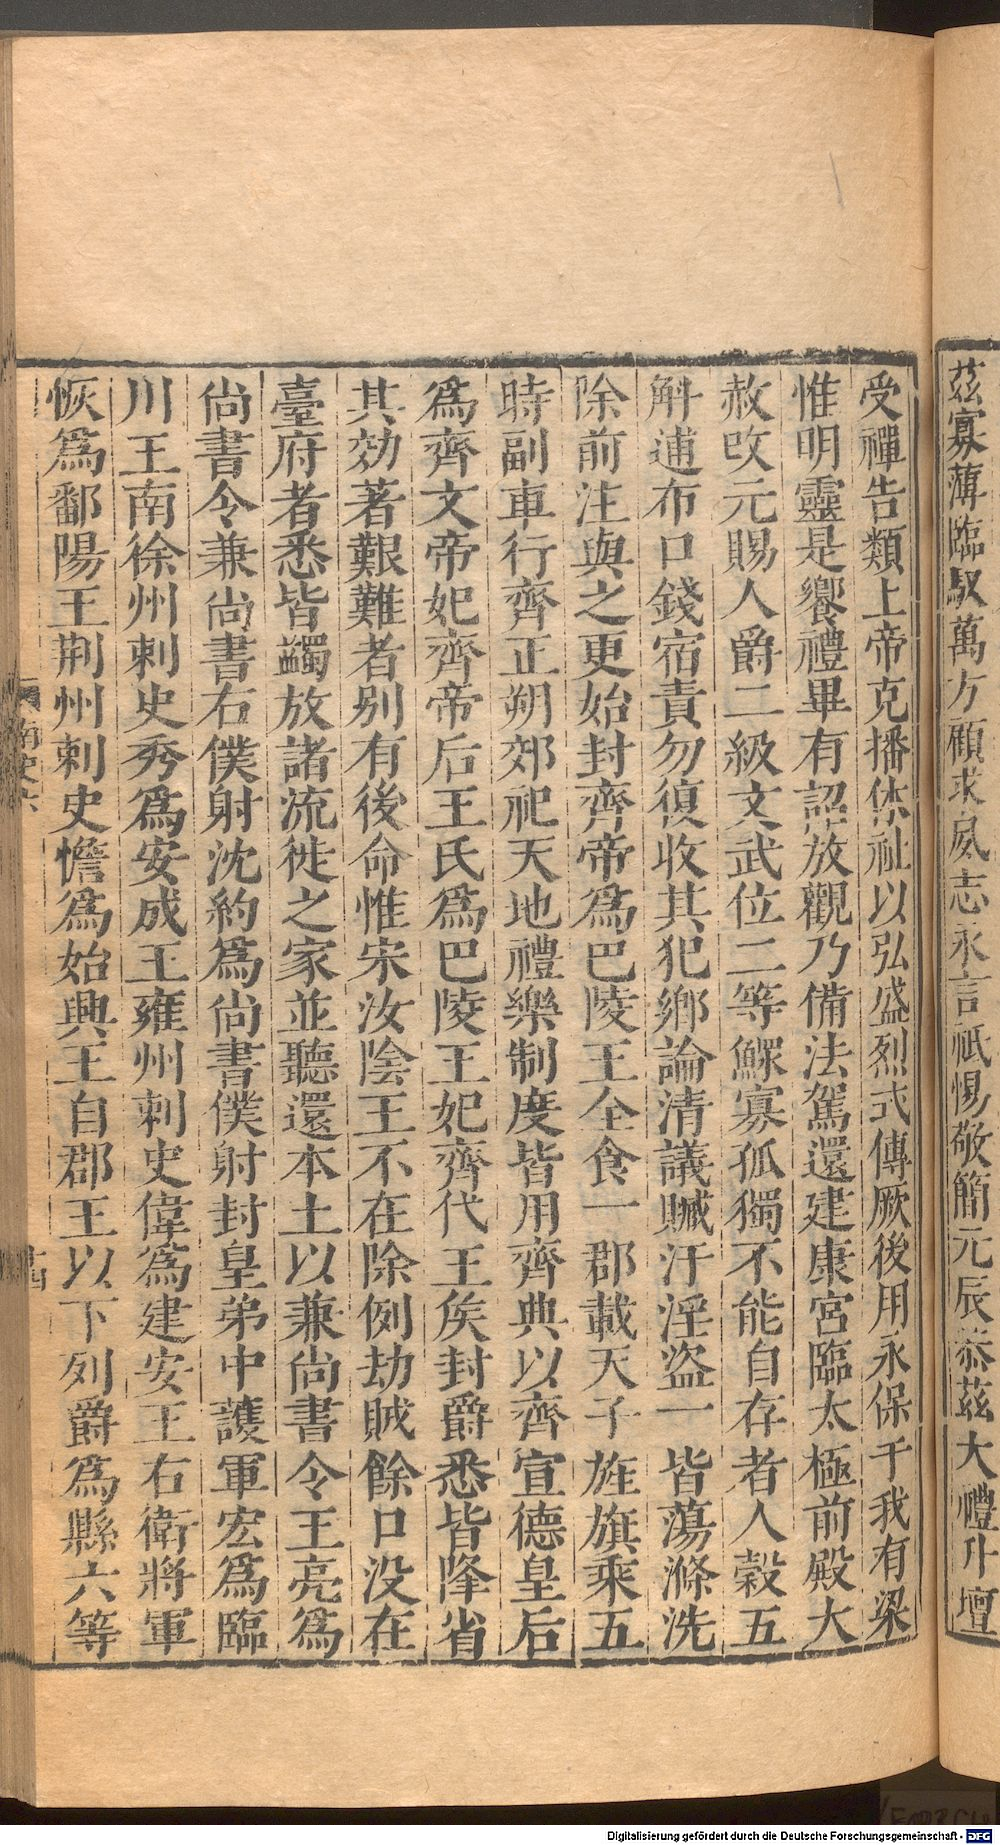 茲寡薄臨馭萬方顧求夙志永言祇惕敬簡元辰恭茲大禮升壇
受禪告類上帝克播休祉以弘盛烈式傳厥後用永保于我有梁
惟明靈是饗禮畢有詔放觀乃備法駕還建康宮臨太極前殿大
赦改元賜人爵二級文武位二等鰥寡孤獨不能自存者人穀五
斛逋布口錢宿責勿復收其犯鄉論清議贓汙淫盜一皆蕩滌洗
除前注與之更始封齊帝爲巴陵王全食一郡載天子旌旗乘五
時副車行齊正朔郊祀天地禮樂制度皆用齊典以齊宣德皇后
爲齊文帝妃齊帝后王氏爲巴陵王妃齊代王侯封爵悉皆降省
其効著艱難者别有後命惟宋汝陰王不在除例劫賊餘口没在
臺府者悉皆蠲放諸流徙之家並聽還本土以兼尚書令王亮爲
尚書令兼尚書右僕射沈約爲尚書僕射封皇弟中護軍宏爲臨
川王南徐州刺史秀爲安成王雍州刺史偉爲建安王右衛將軍
恢爲鄱陽王荆州刺史憺爲始興王自郡王以下列爵爲縣六等
南史六
十四
Digitalisierung gefördert durch die Deutsche Forschungsgemeinschaft - DFG